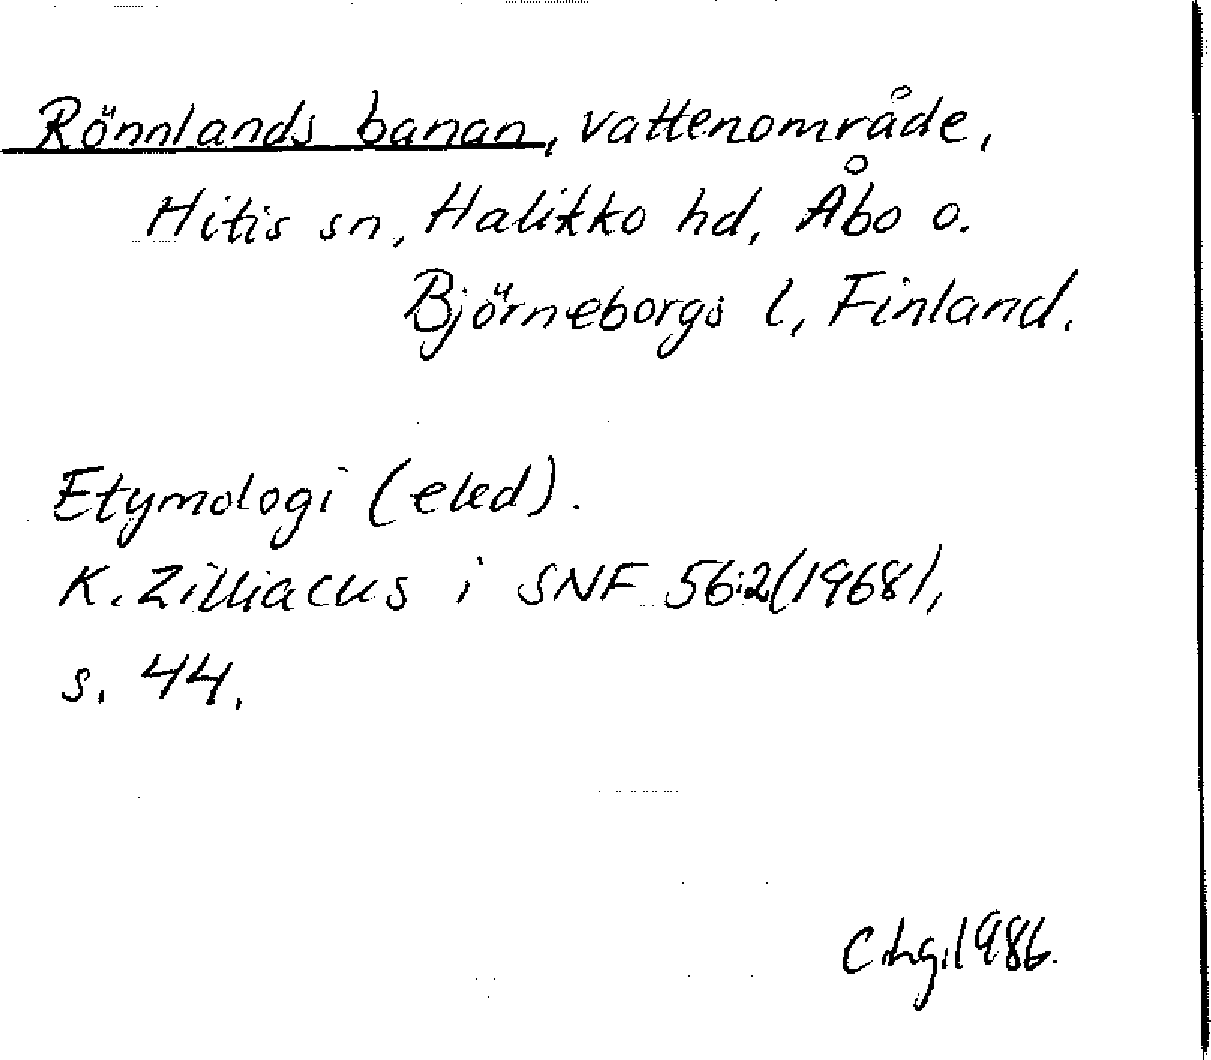 Rönnlands banan, vattenområde,
Hitis sn, Halikko hd, Åbo o.
Björneborgs l, Finland.
Etymologi (eled).
K. Zilliacus i SNF 56:2(1968),
s. 44.
1986.